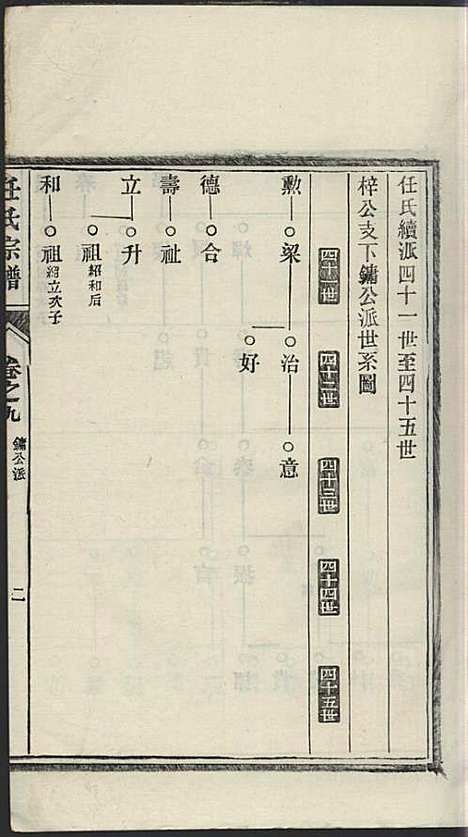 任氏續派四十一世至四十五世
梓公支下鏞公派世系圖
四十一世 四十二世 四十三世 四十四世 四十五世
勲 梁 治 意
好
德 合
壽 祉
立 升
祖 紹和后
和 祖 紹立次子
任氏宗譜 卷之九 鏞公派 二